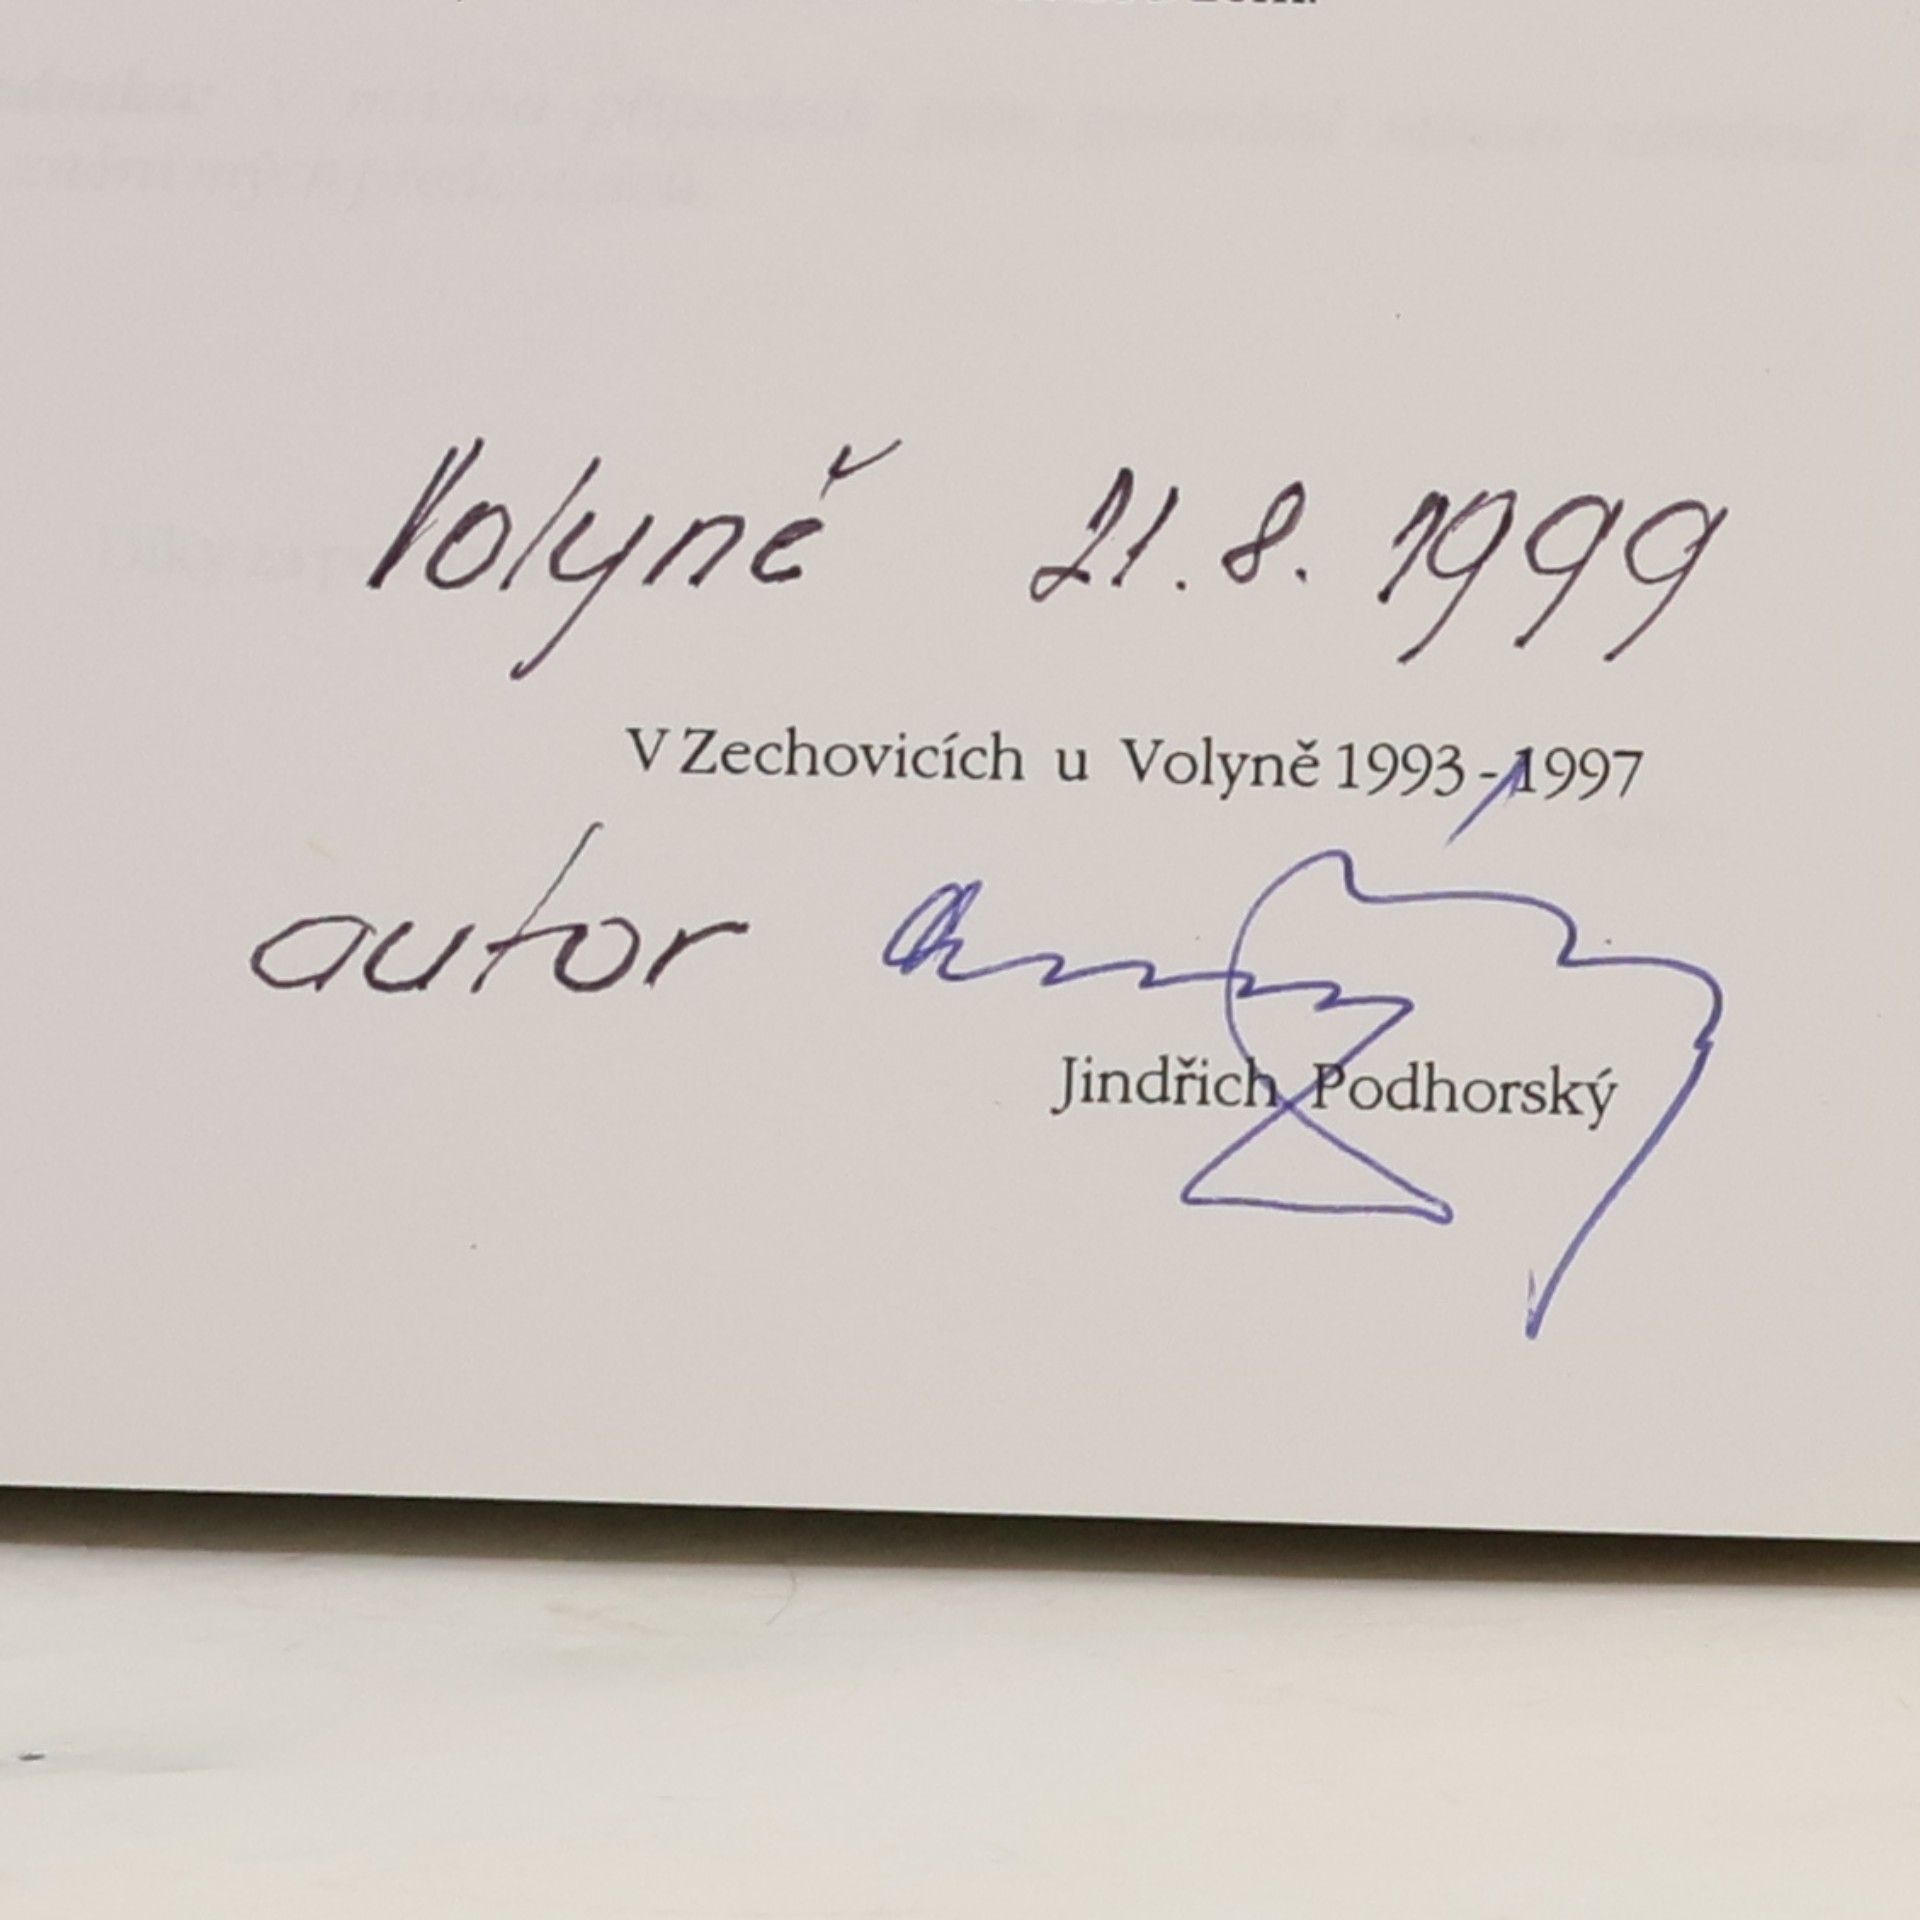 Volyně 21.8.1999
V Zechovicích u Volyně 1993-1997
autor
Jindřich Podhorský